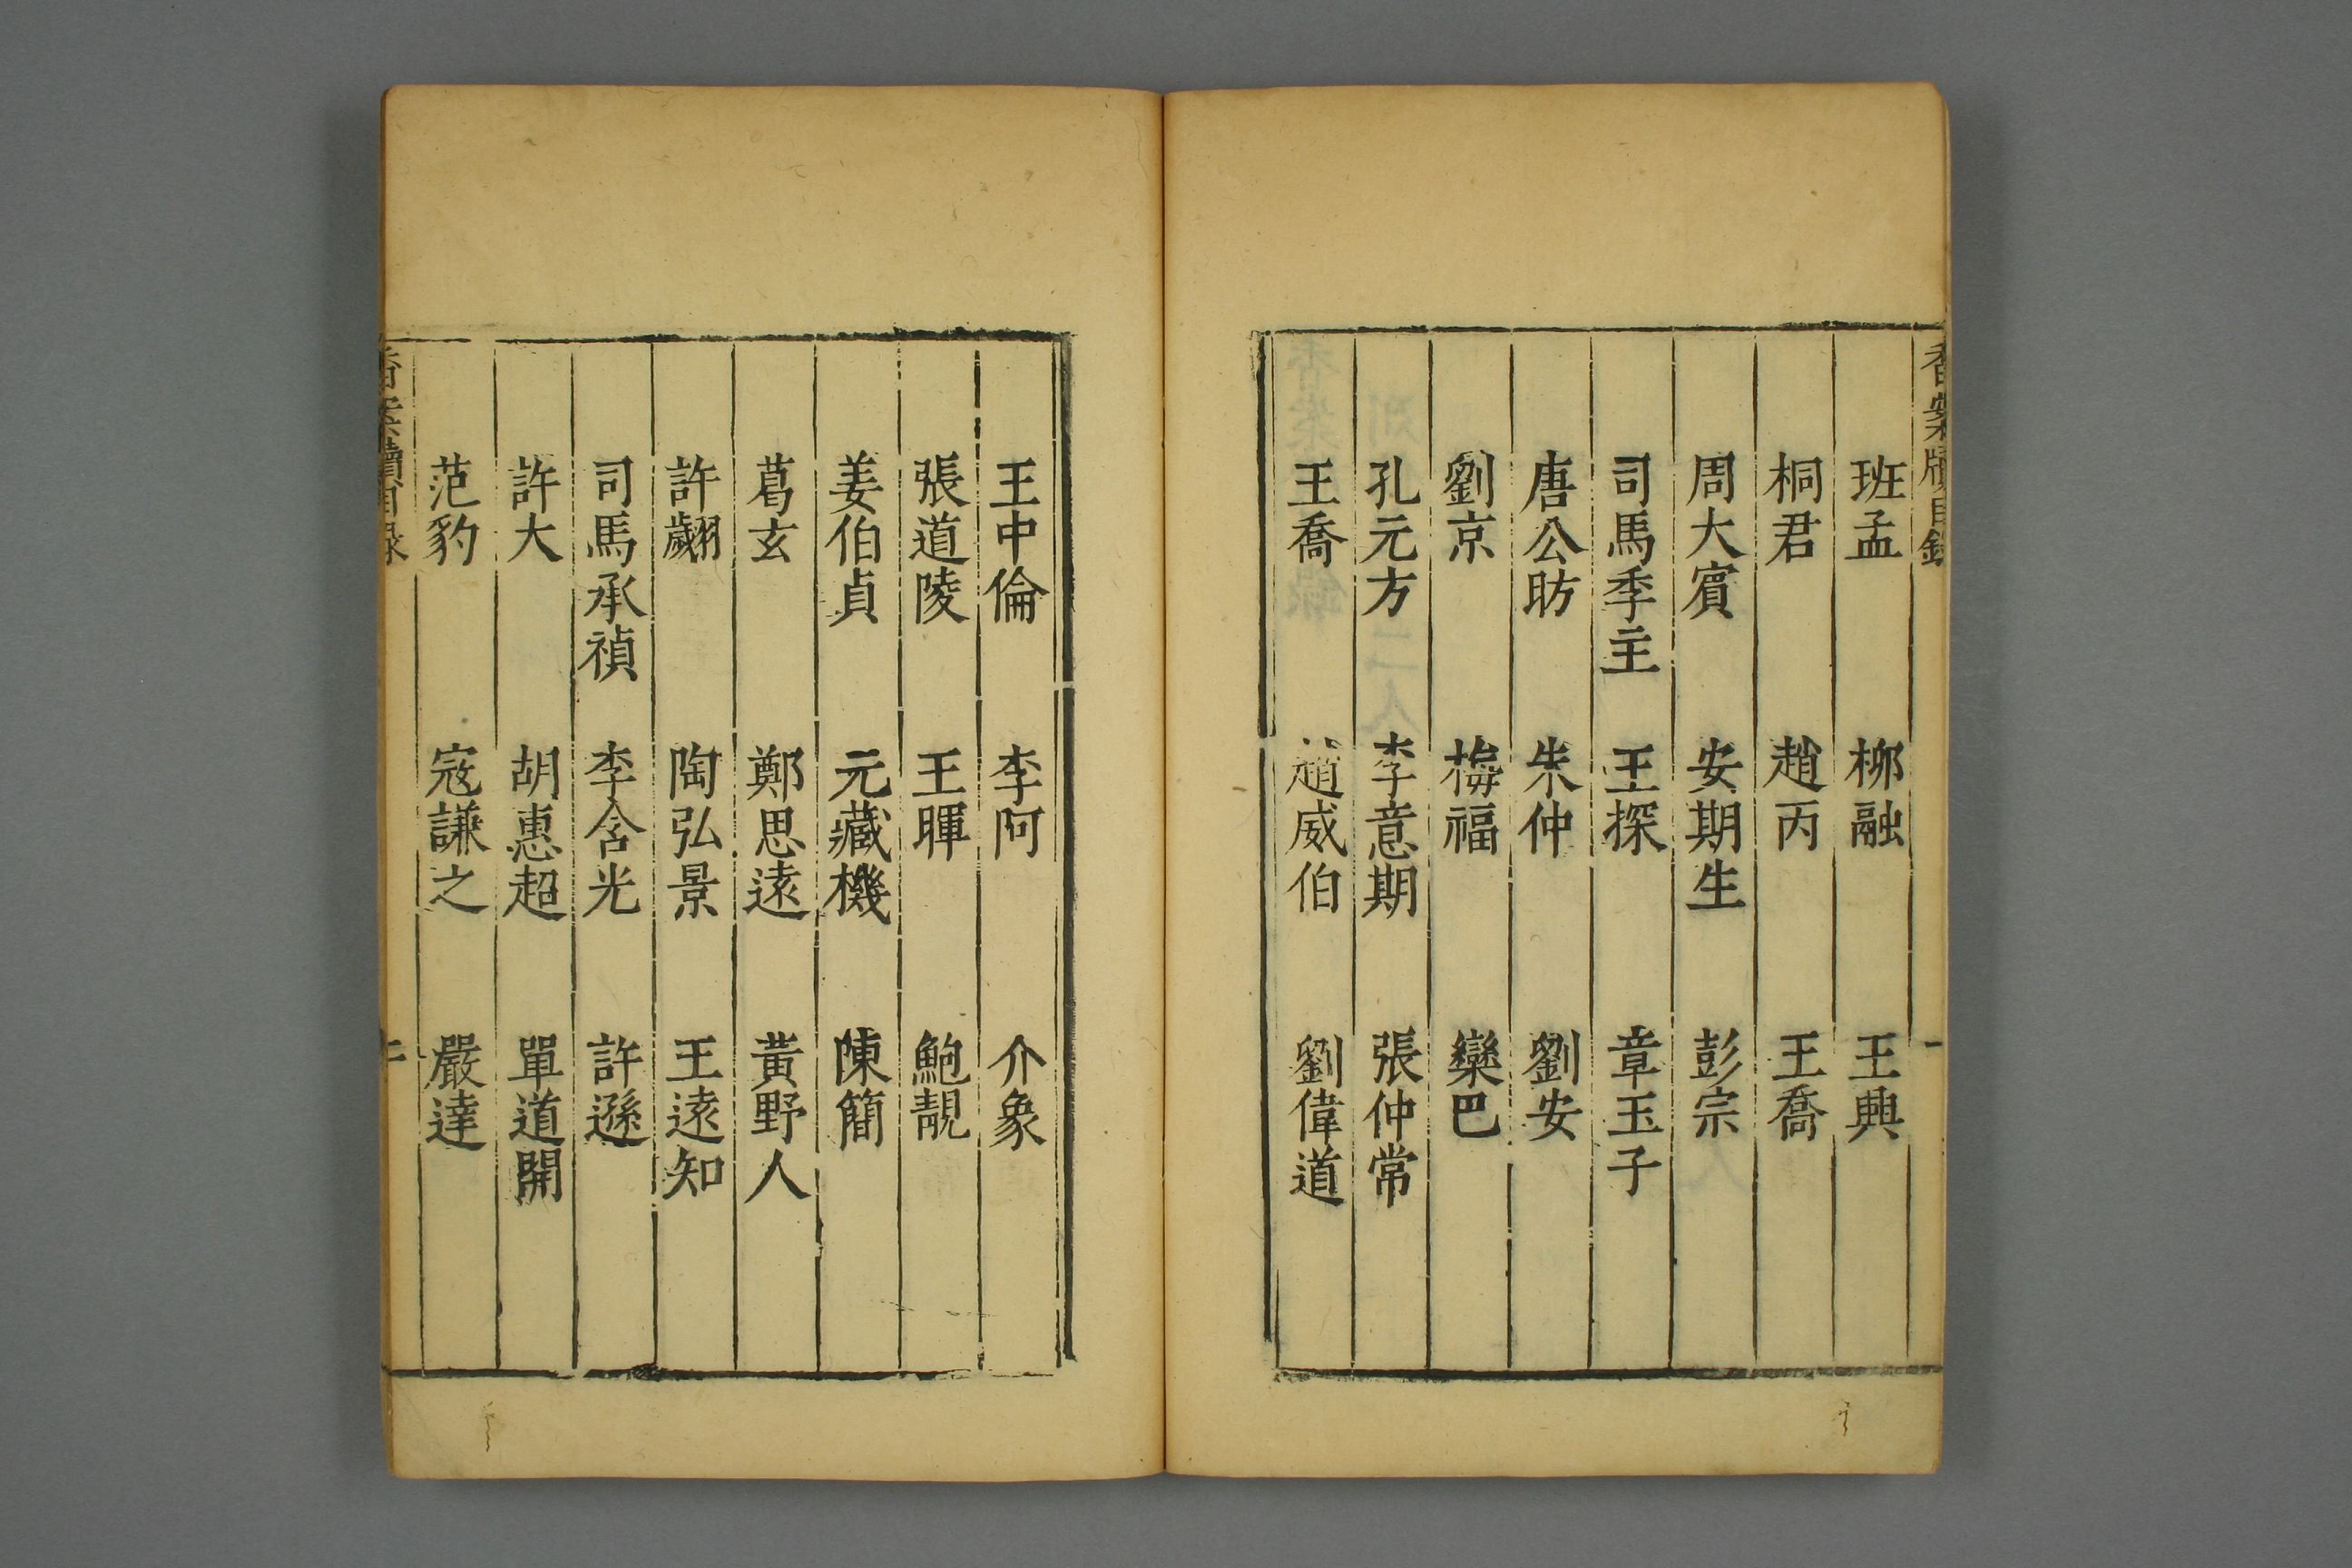 香案牘目錄
一
班孟 柳融 王興
桐君 趙丙 王喬
周大賓 安期生 彭宗
司馬季主 王探 章玉子
唐公昉 朱仲 劉安
劉京 梅福 欒巴
孔元方 李意期 張仲常
王喬 趙威伯 劉偉道
王中倫 李阿 介象
張道陵 王暉 鮑靚
姜伯貞 元藏機 陳簡
葛玄 鄭思遠 黃野人
許翽 陶弘景 王遠知
司馬承禎 李含光 許遜
許大 胡惠超 單道開
范豹 寇謙之 嚴達
香案牘目錄
二